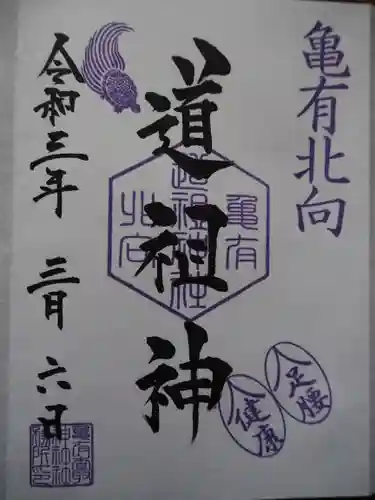 亀有北向
道祖神
令和三年 三月六日
亀有
道祖神社
北向
足腰
健康